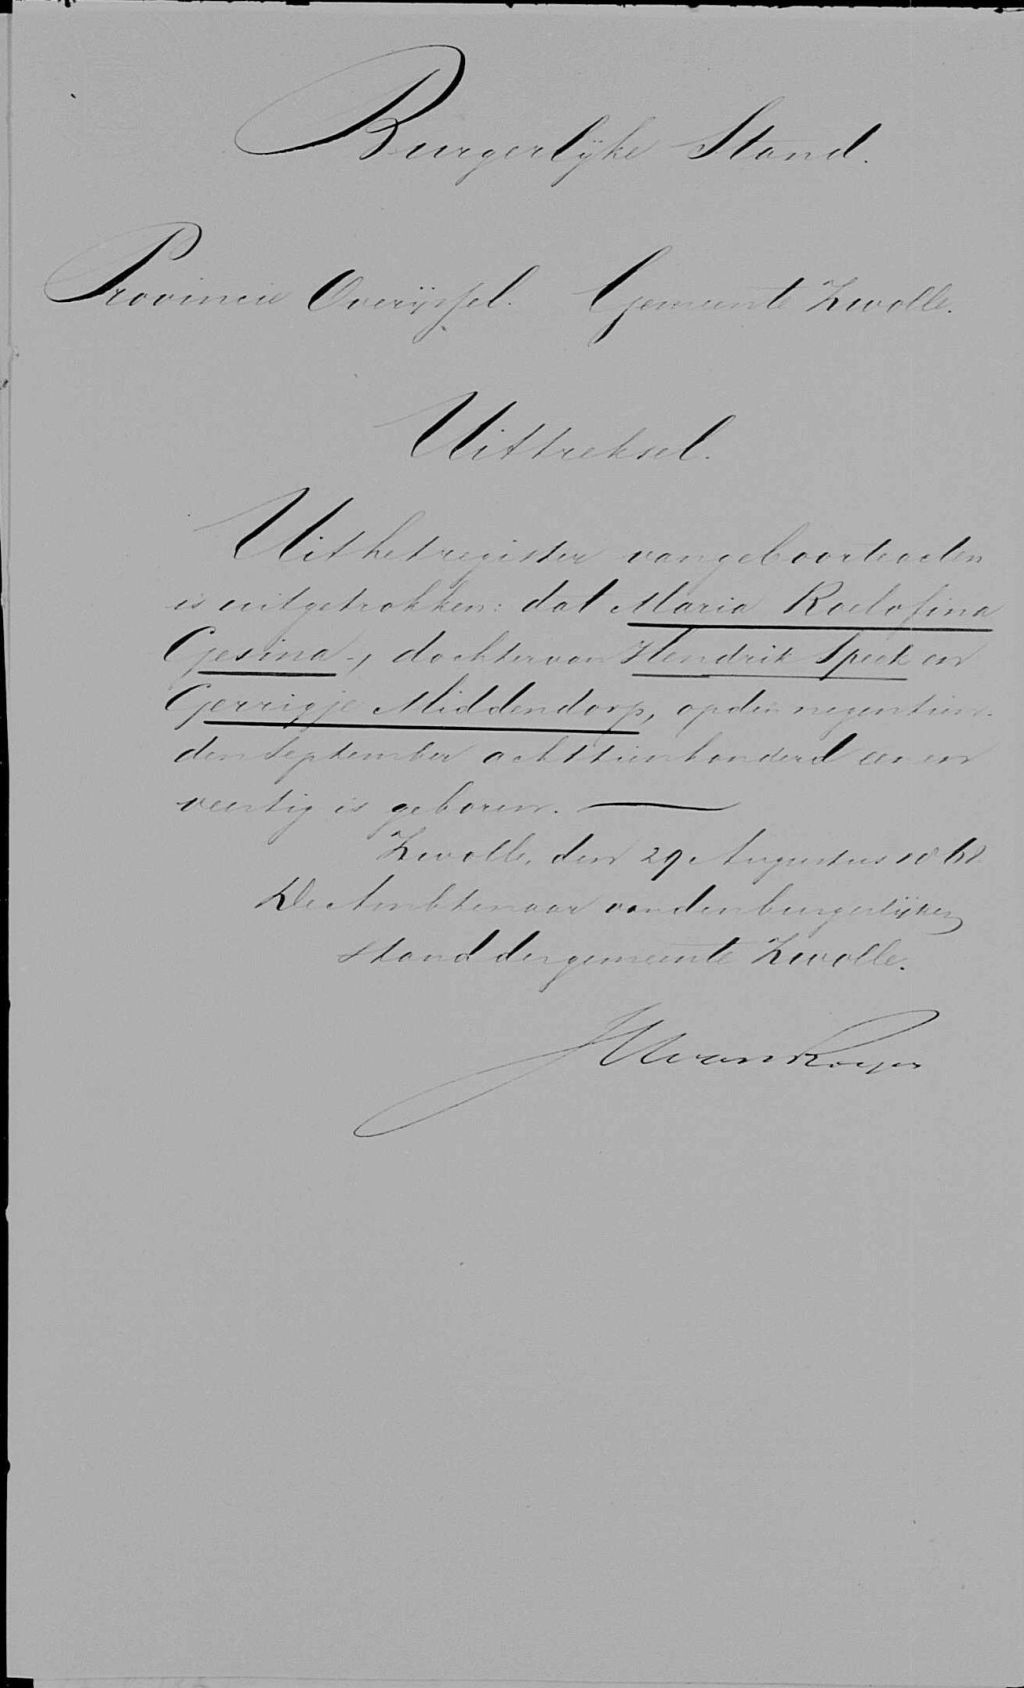 Burgerlijke Stand.
Provincie Overijssel. Gemeente Zwolle.
Uittreksel.
Uit het register van geboorteacten
is uitgetrokken: dat Maria Roelofina
Gesina, dochter van Hendrik Speek en
Gerrigje Middendorp, op den negentien-
den September achttienhonderd een en
veertig is geboren.
Zwolle, den 29 Augustus
De Ambtenaar van den burgerlijken
stand der gemeente Zwolle.